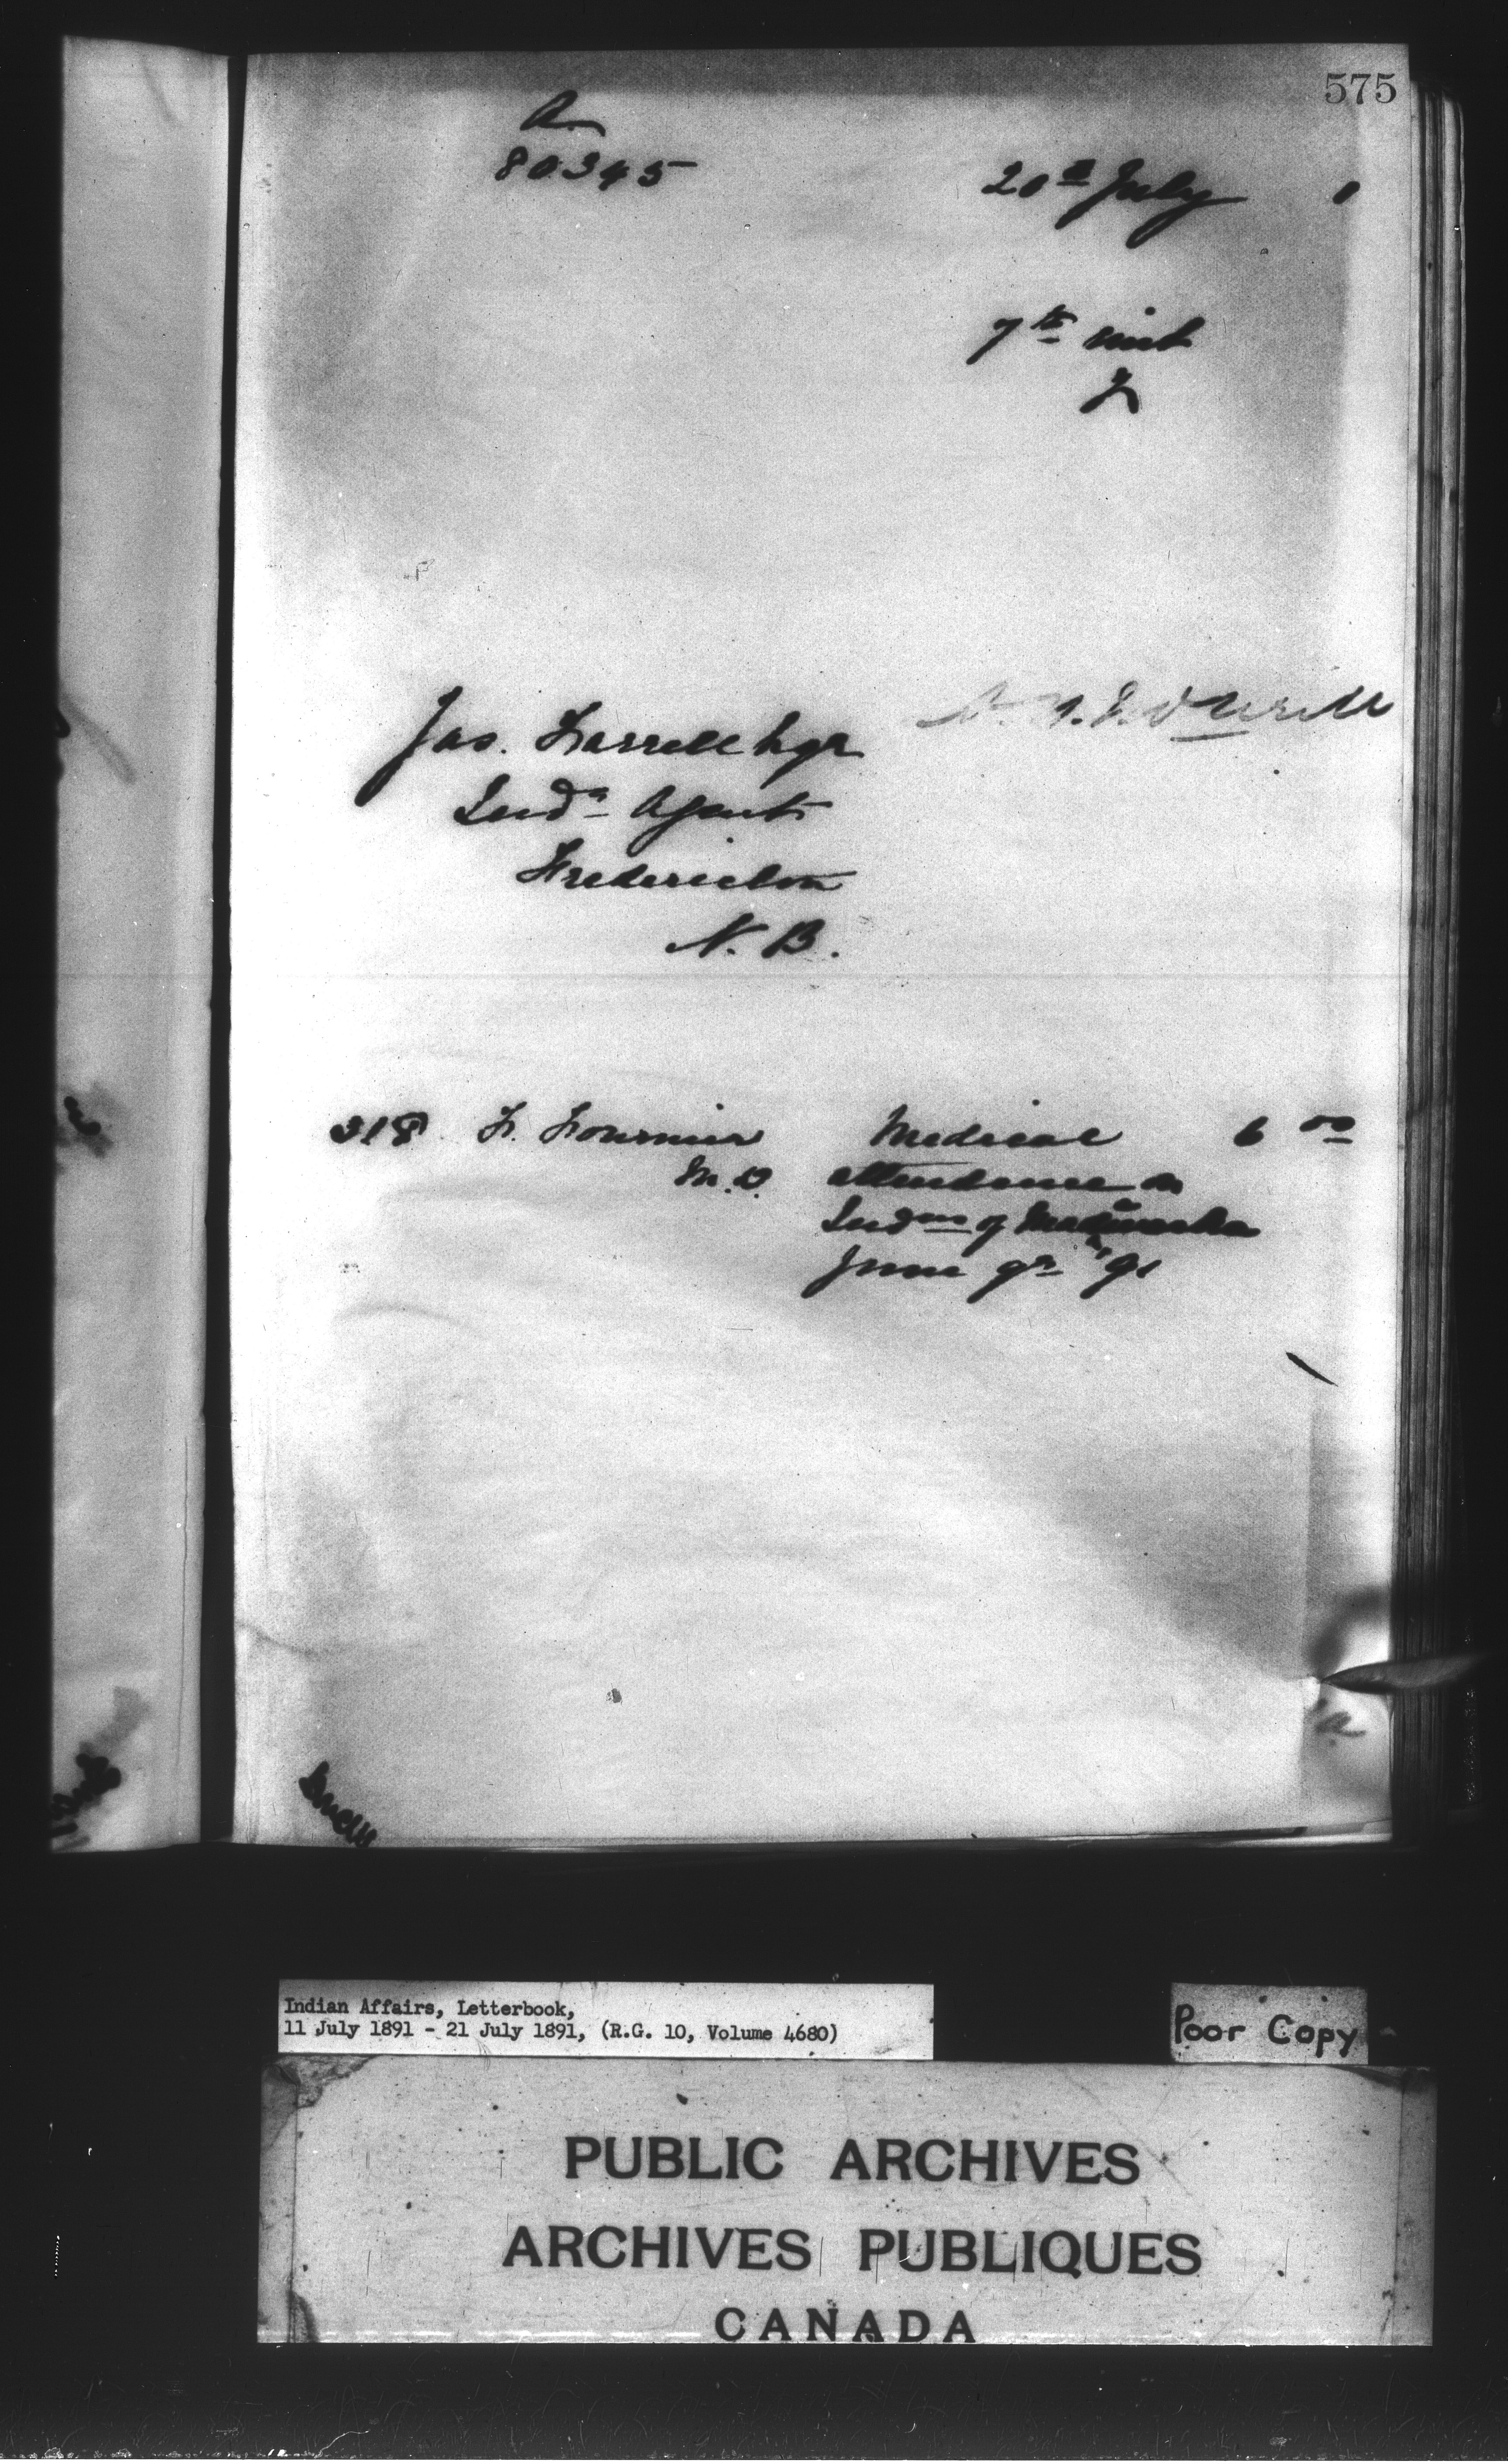 575
A
80345
20th July 1
7th inst
Jas. Farrell Esqr
Indn Agent
Fredericton
N. B.
318 F. Fournier Medical 6 00
M.D. attendance on
Indns of Madawaska
June qr '91
Indian Affairs, Letterbook,
11 July 1891 - 21 July 1891, (R.G. 10, Volume 4680)
Poor Copy
PUBLIC ARCHIVES
ARCHIVES PUBLIQUES
CANADA